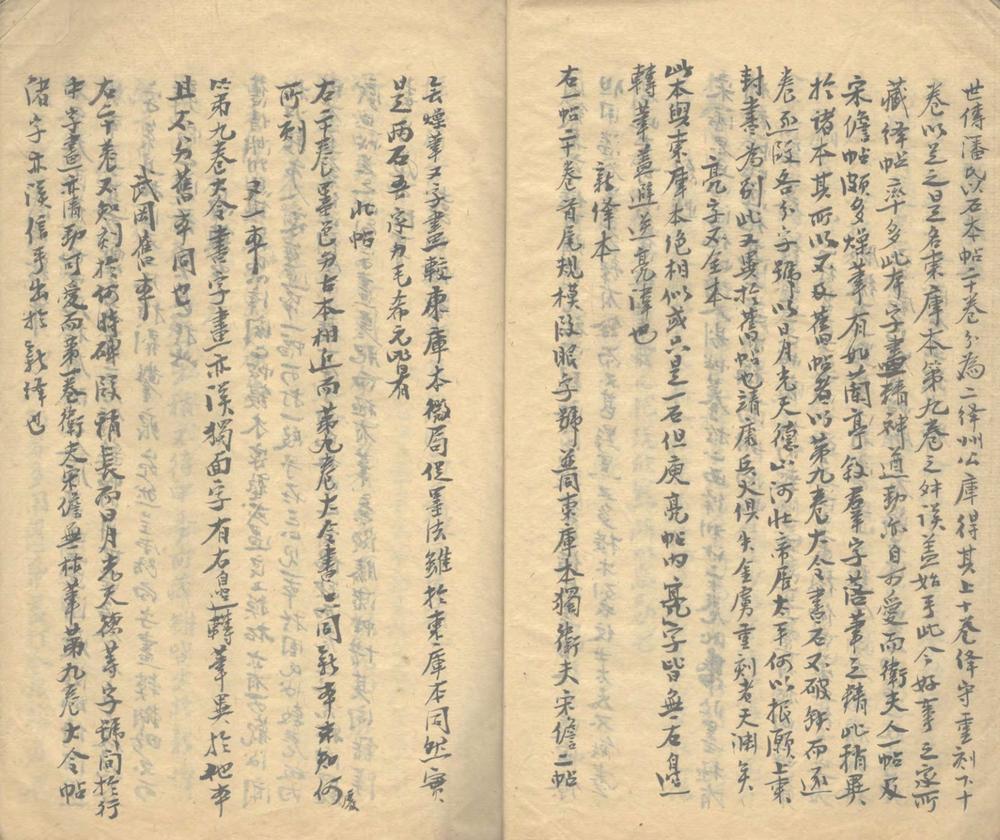 世傳潘氏以石本帖二十卷分為二絳州公庫得其上十卷絳守重刻下十
卷以足之曰是名東庫本第九卷之舛誤蓋始乎此今好事之家所
藏絳帖率多此本字畫精神遒勁亦自可愛而衛夫人一帖及
宋儋帖頗多燥筆有如蘭亭敘羣字落筆之精此稍異
於諸本其所以又及舊帖者以第九卷大令書石不破缺而逐
卷逐段各分字號以日月光天德山河壯帝居太平何以報願上東
封書為別此又異於舊帖也靖康兵火俱失金虜重刻者天淵矣
亮字不全本
此本與東庫本絕相似或只是一石但庚亮帖內亮字皆無右邊
轉筆蓋避逆亮諱也
新絳本
右一帖二十卷首尾規模段眼字號並同東庫本獨衛夫宋儋二帖
去燥筆又字畫較東庫本微局促墨法雖於東庫本同然實
是兩石吾家有毛希元所著
右二十卷墨色與古本相近而第九卷大令書亦同新本未知何處
所刻
又一本
第九卷大令書字畫亦誤獨面字有右邊轉筆異於他本
且不與舊本同也
武岡舊本
右二十卷不知刻於何時碑段稍長而日月光天德等字號間於行
中字畫亦清勁可愛而第一卷衛夫宋儋無一枯筆第九卷大令帖
諸字亦誤信乎出於新絳也